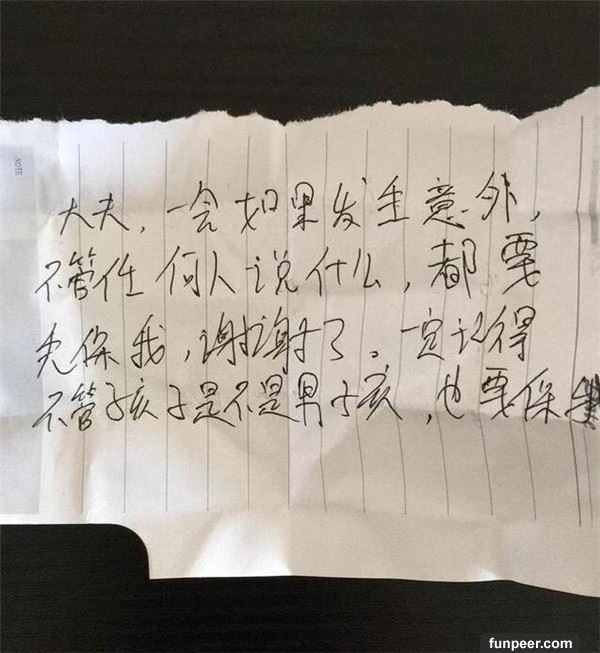 NOTE
大夫，一会如果发生意外，
不管任何人说什么，都要
先保我，谢谢了。一定记得
不管孩子是不是男孩，也要保
funpeer.com